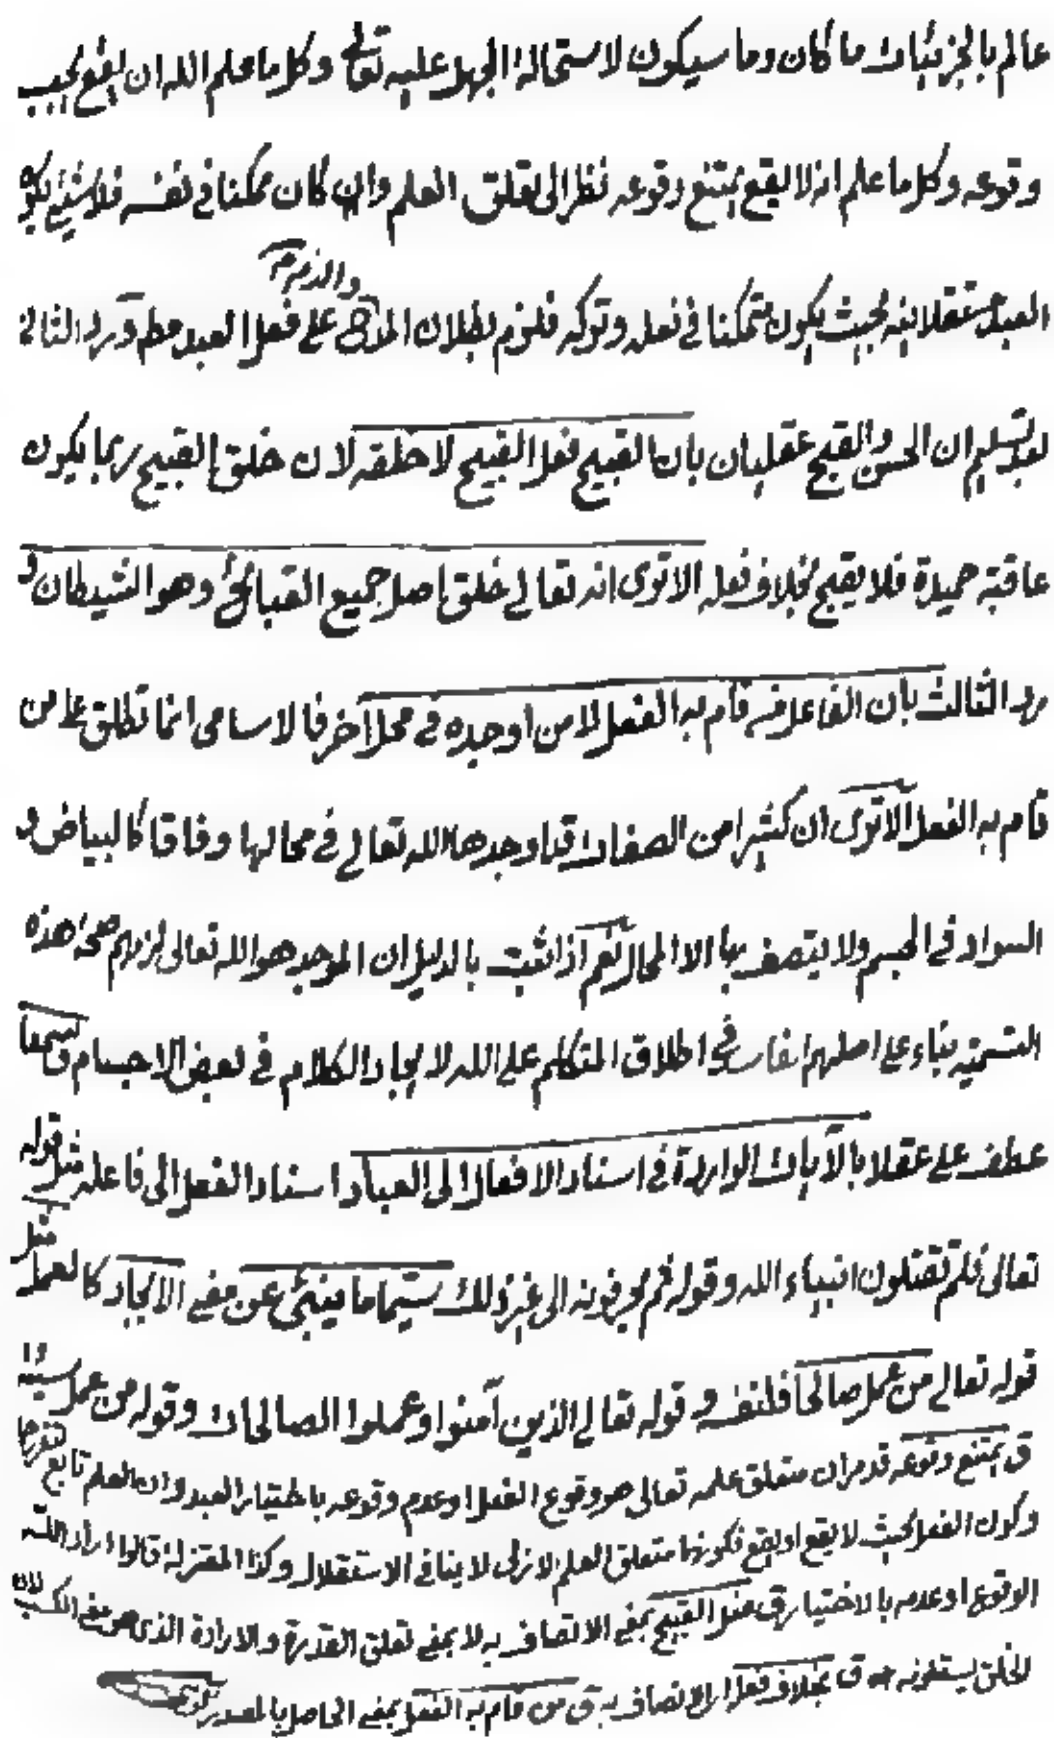 عالم بالجزئيات ما كان وما سيكون لاستحالة الجهل عليه تعالى وكل ما علم الله ان يقع يجب
وقوعه وكل ما علم انه لا يقع يمتنع وقوعه نظرا الى تعلق العلم وان كان ممكنا في نفسه فلا شيئ يكو
والذم م
العبد مستقلا فيه بحيث يكون متمكنا في فعله وتركه فلزم بطلان المدح على فعل العبد مطم ورد الثاني
بعد تسليم ان الحسن والقبح عقليان بان القبيح فعل القبيح لا خلقه لان خلق القبيح ربما يكون
عاقبة حميدة فلا يقبح بخلاف فعله الا ترى انه تعالى خلق اصل جميع القبائح وهو الشيطان و
رد الثالث بان الفاعل من قام به الفعل لا من اوجده في محل آخر فالاسامى انما تطلق على من
قام به الفعل الا ترى ان كثيرا من الصفات قد اوجدها الله تعالى في محالها وفاقا كالبياض و
السواد في الجسم ولا يتصف بها الا المحال نعم اذا ثبت بالدليل ان الموجد هو الله تعالى لزمهم صحة هذه
التسمية بناء على اصلهم الفاسد في اطلاق المتكلم على الله لايجاد الكلام في بعض الاجسام ق وسمعا
عطف على عقلا بالآيات الواردة في اسناد الافعال الى العباد اسناد الفعل الى فاعله مثل قوله
تعالى فلم تقتلون انبياء الله وقوله ثم يحرفونه الى غير ذلك سيما ما ينبئ عن معنى الايجاد كالعمل مثل
قوله تعالى من عمل صالحا فلنفسه وقوله تعالى الذين آمنوا وعملوا الصالحات وقوله من عمل سيئة
ق يمتنع وقوعه قد مر ان متعلق علمه تعالى هو وقوع الفعل او عدم وقوعه باختيار العبد وان العلم تابع
وكون الفعل بحيث لا يقع او يقع فكونها متعلق العلم الازلى لا ينافى الاستقلال وكذا المعتزلة قالوا اراد الله
الوقوع او عدمه بالاختيار ق فعل القبيح بمعنى الاتصاف به لا بمعنى تعلق القدرة والارادة الذى هو معنى الكسب لان
الخلق يستلزمه ق بخلاف فعله اى الاتصاف به ق من قام به الفعل بمعنى الحاصل بالمصدر